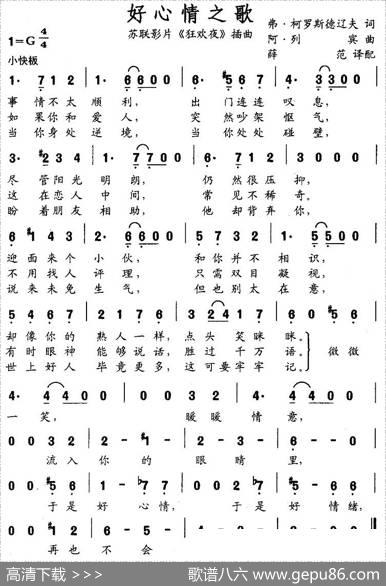 好心情之歌
1=G 4/4
苏联影片《狂欢夜》插曲
弗·柯罗斯德辽夫 词
阿·列 宾 曲
薛 范 译配
小快板
1· 712 1·6600 6·712 1·6600
事 情不太 顺利, 出 门连连 叹息,
如 果你和 爱人, 突 然吵架 怄气,
当 你身处 逆境, 当 你处处 碰壁,
3· #234 1·7700 6·712 3000
尽 管阳光 明朗, 仍 然很压 抑,
这 在恋人 中间, 常 见不稀 奇。
盼 着朋友 相助, 他 却背弃 你,
6#143 2·6600 5724 1·5500
迎面来个 小伙, 和你并不 相识,
不用找人 评理, 只需双目 凝视,
说来未免 生气, 但也别太 在意,
5467 5412 32417 60 0#56
却像你的 熟人一样, 点头笑眯 眯。 微微
有时眼神 能够说话, 胜过千万 语。
世上好人 毕竟更多, 这可要牢牢 记。
4· 4400 4·4400
一 笑, 暖暖 情意,
0032 2-#1- 0032 6·600
流入 你 的 眼睛 里,
00#56 1-♭70 00#56 2-10
于是 好 心情, 于是 好 情绪,
0053 6-#5- 6--- 6000
再也 不 会
高清下载 >>>
歌谱八六 www.gepu86.com